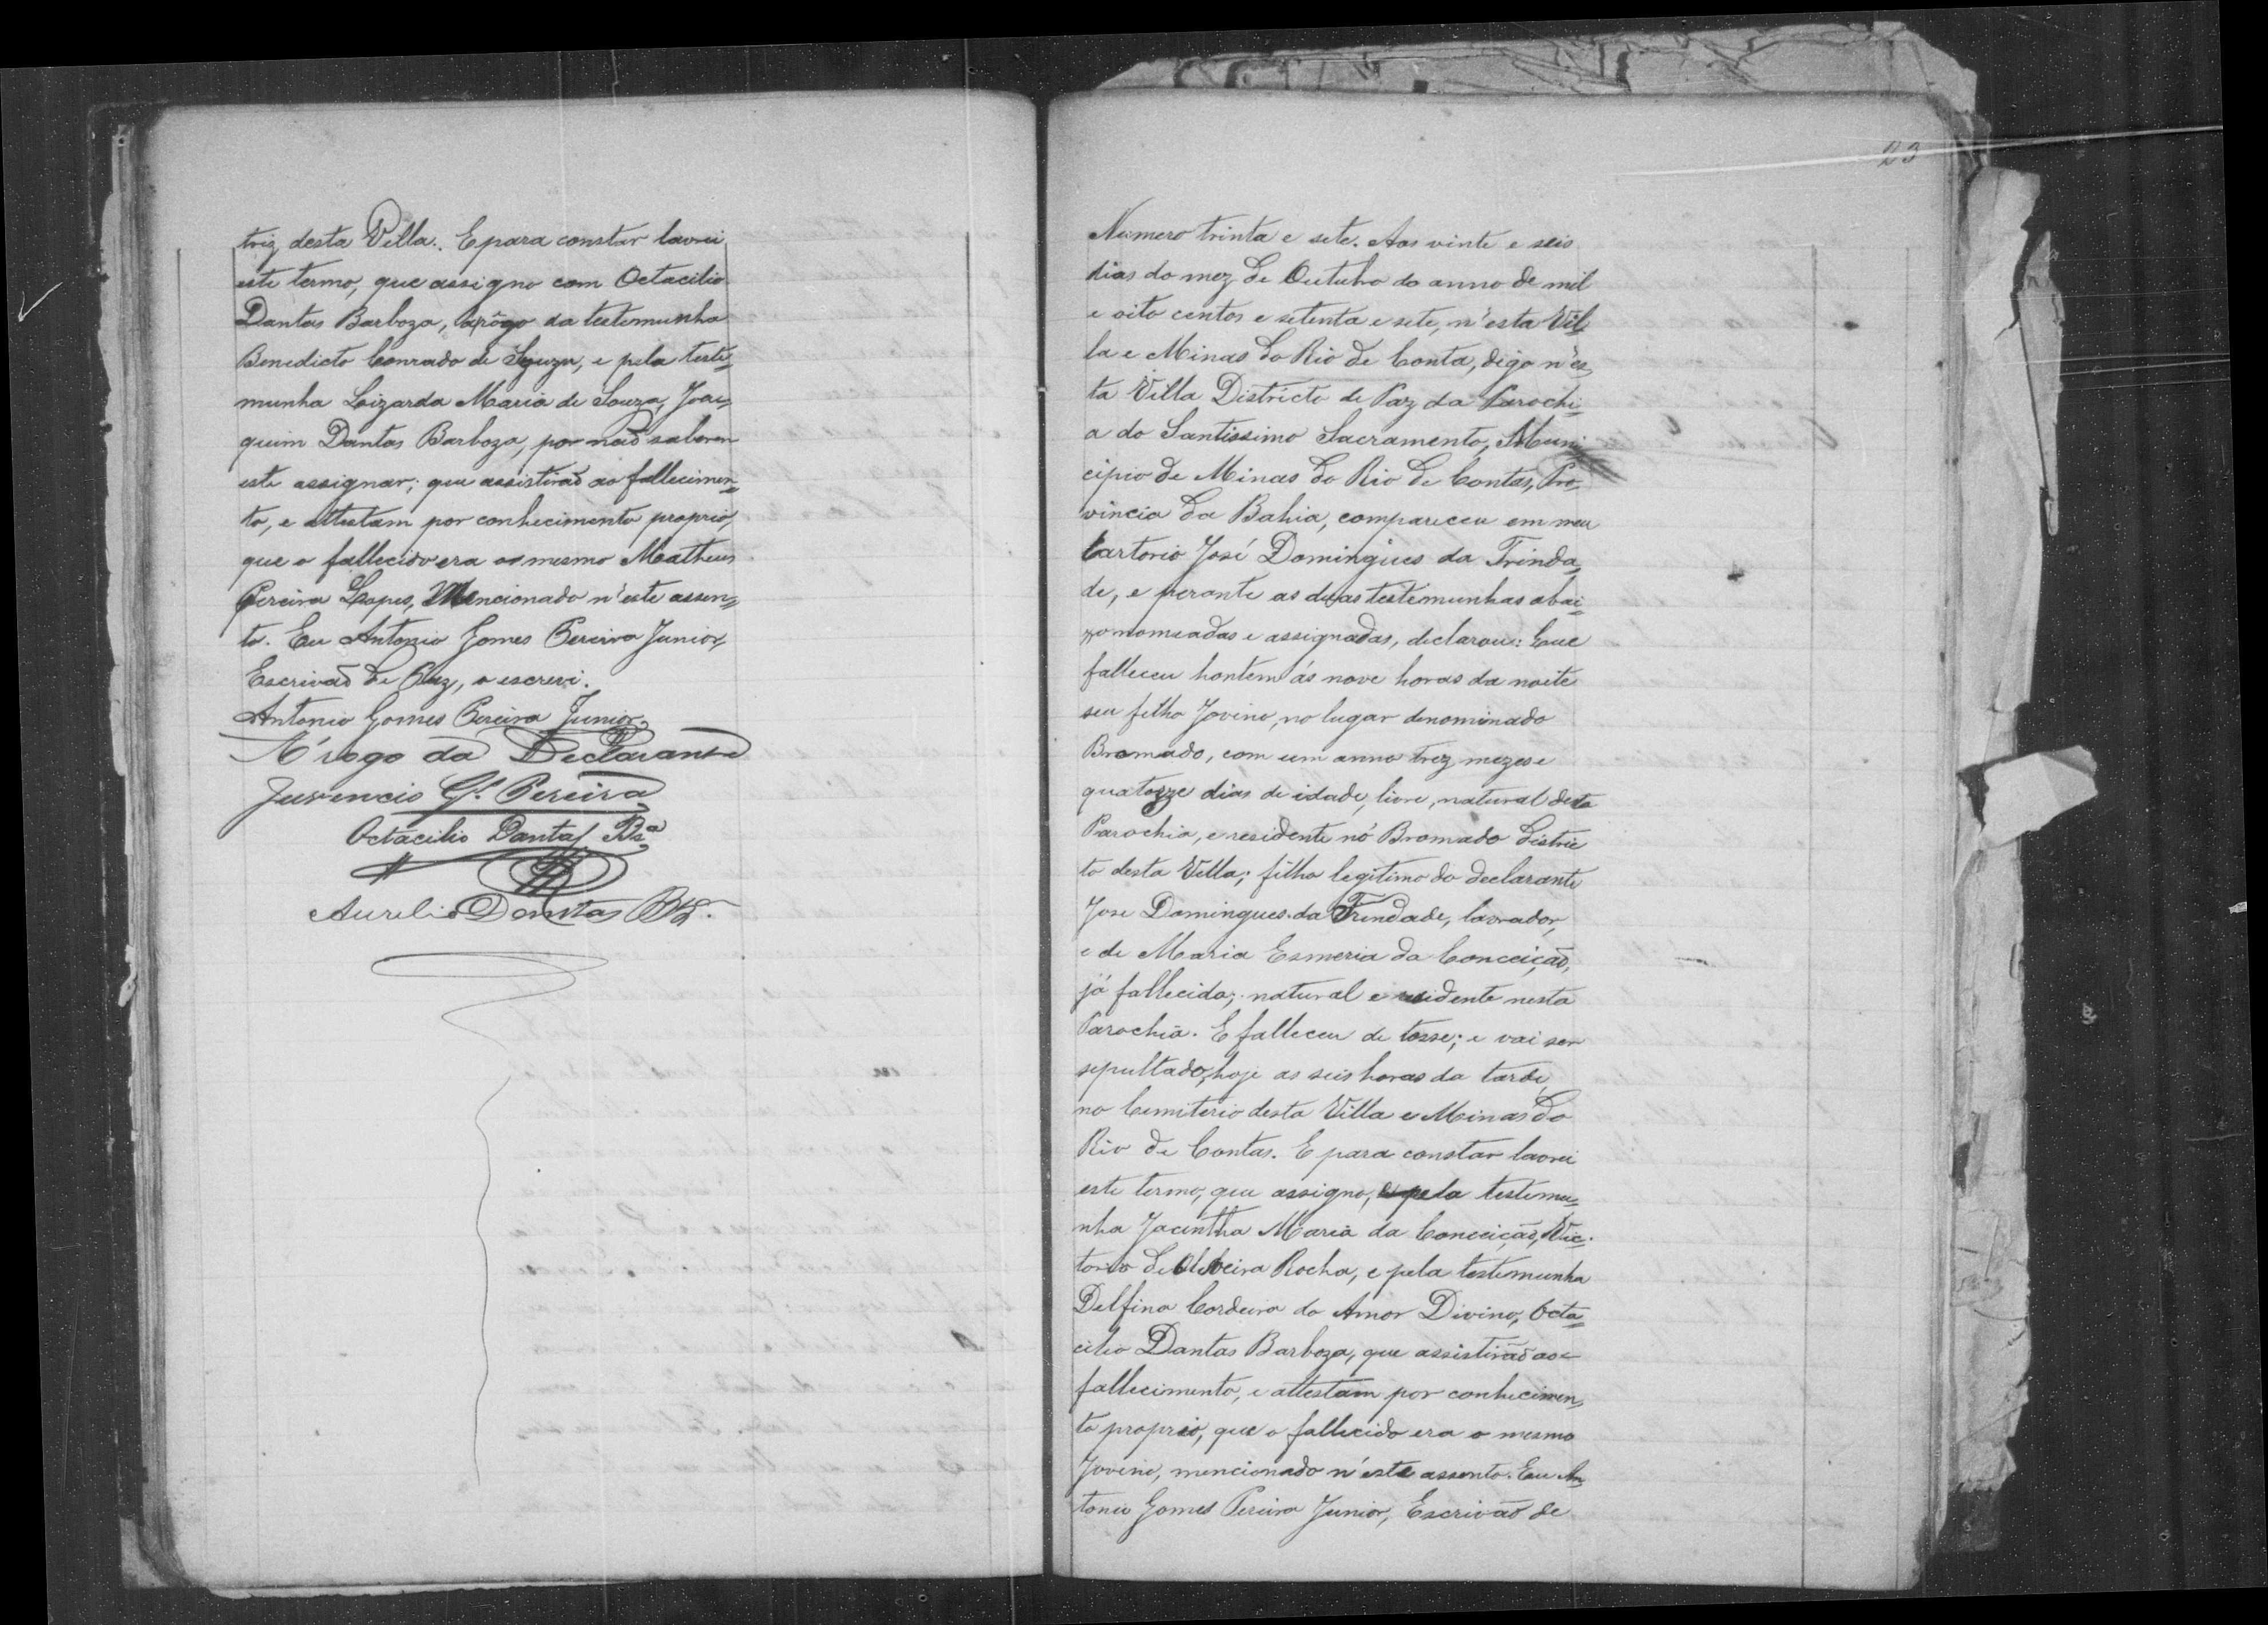 triz desta Villa. E para constar lavrei
este termo, que assigno com Octacilio
Dantas Barboza, a rôgo da testemunha
Benedicto Conrado de Souza, e pela teste=
munha Lizarda Maria de Souza, Joa=
quim Dantas Barboza, por naõ saberem
este assignar; que assistiraõ ao fallecimen=
to, e attestam por conhecimento proprio,
que o fallecido era o mesmo Matheus
Pereira Lopes, Mencionado n'este assen=
to. Eu Antonio Gomes Pereira Junior,
Escrivaõ de Paz, o escrevi.
Antonio Gomes Pereira Junior
A' rogo da Declarante
Juvencio Gs. Pereira
Octacilio Dantas Bza
Aurelio Dantas
23
Numero trinta e sete. Aos vinte e seis
dias do mez de Outubro do anno de mil
e oito centos e setenta e sete, n'esta Vil=
la e Minas do Rio de Conta, digo n'es=
ta Villa Districto de Paz da Parochi=
a do Santissimo Sacramento, Muni=
cipio de Minas do Rio de Contas, Pro=
vincia da Bahia, compareceu em meu
Cartorio José Domingues da Trinda=
de, e perante as duas testemunhas abai=
xo nomeadas e assignadas, declarou: Que
falleceu hontem ás nove horas da noite
seu filho Jovino, no lugar denominado
Bromado, com um anno trez mezes e
quatorze dias de idade, livre, natural desta
Parochia, e residente nó Bromado Distric
to desta Villa; filho legitimo do declarante
Jose Domingues da Trindade, lavrador,
e de Maria Esmeria da Conceiçaõ,
já fallecida; natural e residente nesta
Parochia. E falleceu de tosse; e vai ser
sepultado, hoje as seis horas da tarde
no Cemiterio desta Villa e Minas do
Rio de Contas. E para constar lavrei
este termo, que assigno, e pela testemu=
nha Jacintha Maria da Conceiçaõ, Vic=
torio de Oliveira Rocha, e pela testemunha
Delfina Cordeira do Amor Divino, Octa=
cilio Dantas Barboza, que assistiraõ ao
fallecimento, e attestam por conhecimen=
to proprio, que o fallecido era o mesmo
Jovino, mencionado n'este assento. Eu An=
tonio Gomes Pereira Junior, Escrivaõ de